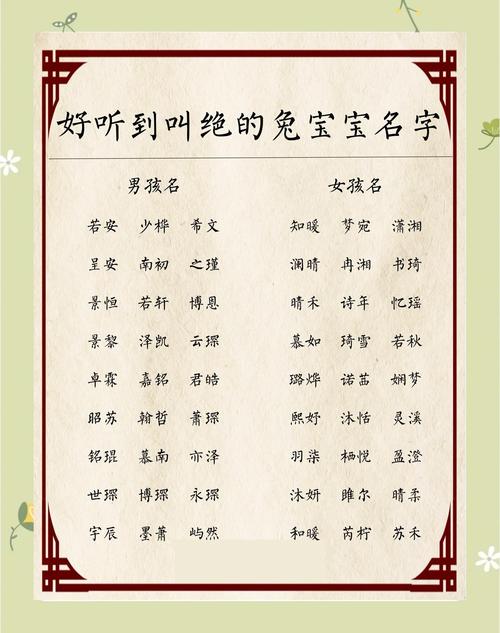 好听到叫绝的兔宝宝名字
男孩名 女孩名
若安 少桦 希文 知暖 梦宛 潇湘
呈安 南初 之瑾 澜晴 冉湘 书琦
景恒 若轩 博恩 晴禾 诗年 忆瑶
景黎 泽凯 云琛 慕如 琦雪 若秋
卓霖 嘉铭 君皓 璐烨 诺茜 娴梦
昭苏 翰哲 萧琛 熙好 沐恬 灵溪
铭琨 慕南 亦泽 羽柒 栖悦 盈澄
世琛 博琛 永琛 沐妍 雎尔 晴柔
宇辰 墨萧 屿然 和暖 芮柠 苏禾